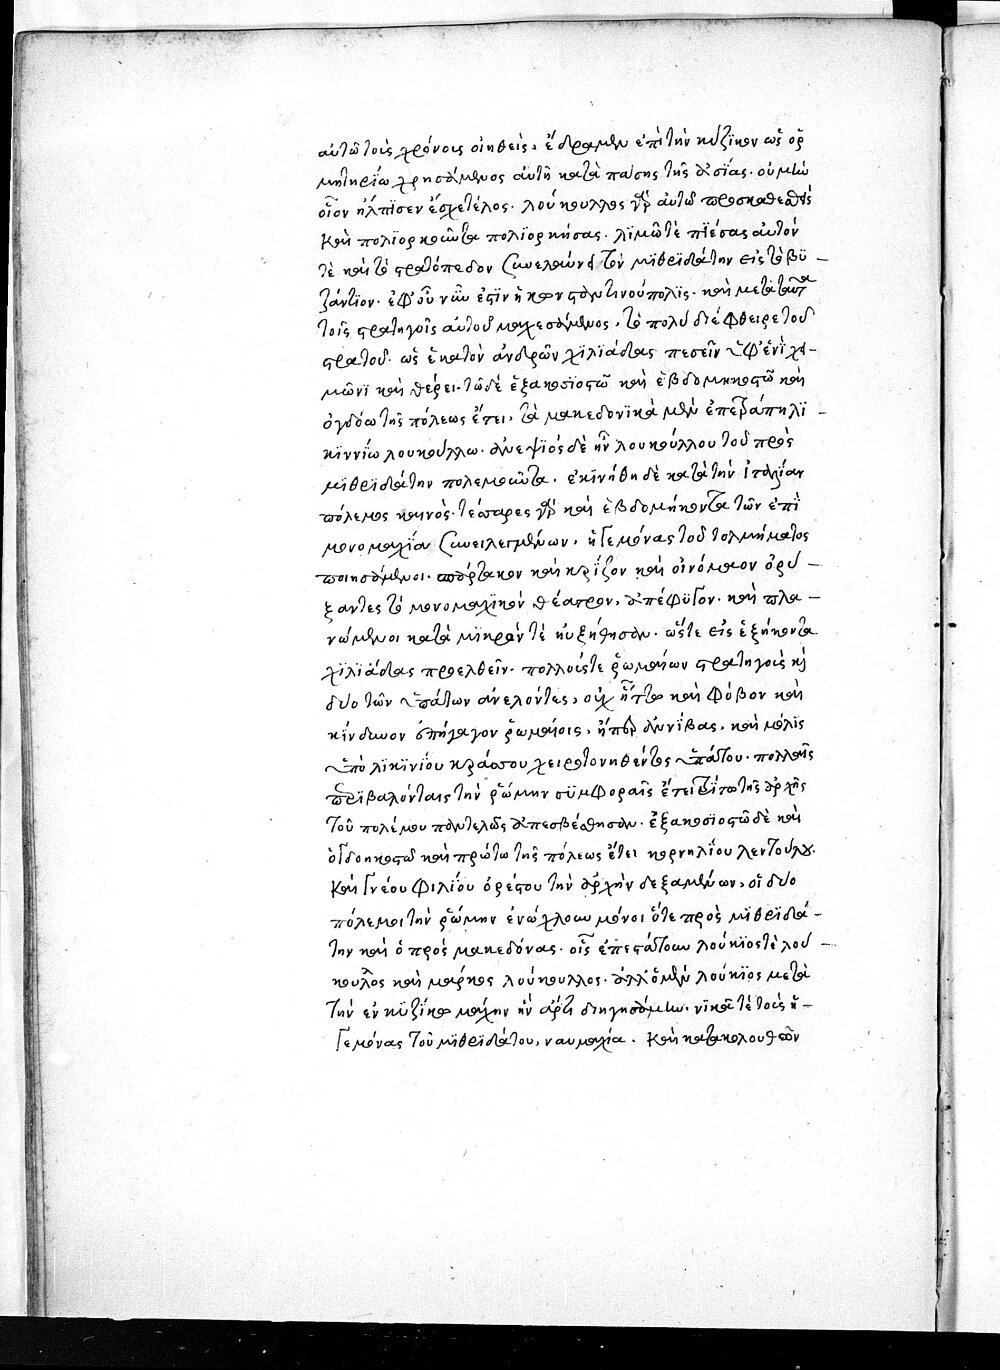 αὐτῶ τοῖς χρόνοις οἰηθεὶς, ἔδραμεν ἐπὶ τὴν κύζϊκον ὡς ὁρ
μητηρίω χρησάμενος αὐτῆ κατὰ πάσης τῆς ἀσίας. οὐ μὴν
οἷον ἤλπισεν ἔσχε τέλος. λούκουλλος γὰρ αὐτῶ προσκαθεσθεὶς
καὶ πολϊορκοῦντα πολϊορκήσας. λϊμῶ τὲ πϊέσας αὐτόν
τὲ καὶ τὸ στρατόπεδον συνελαύνει τὸν μϊθρϊδάτην εἰς τὸ βυ –
ζάντϊον. ἐφ' οὗ νῦν ἐστὶν ἡ κωνσταντινούπολϊς. καὶ μετὰ ταῦτα
τοῖς στρατηγοῖς αὐτοῦ μαχεσάμενος, τὸ πολὺ διέφθειρε τοῦ
στρατοῦ. ὡς ἑκατὸν ἀνδρῶν χϊλϊάδας πεσεῖν ὑφ' ἑνὶ χει–
μῶνϊ καὶ θέρει. τῶ δὲ ἑξακοσϊοστῶ καὶ ἑβδομηκοστῶ καὶ
ὀγδόω τῆς πόλεως ἔτει, τὰ μακεδονϊκὰ μὲν ἐπετράπη λϊ –
κϊννίω λουκούλλω. ἀνεψϊὸς δὲ ἦν λουκούλλου τοῦ πρὸς
μϊθρϊδάτην πολεμοῦντα. ἐκϊνήθη δὲ κατὰ τὴν ἰταλίαν
πόλεμος καινὸς. τέσσαρες γὰρ καὶ ἑβδομήκοντα τῶν ἐπὶ
μονομαχΐα συνειλεγμένων, ἡγεμόνας τοῦ τολμήματος
ποιησάμενοι. σπάρτακον καὶ κρίξον καὶ οἰνόμαον ὀρύ –
ξαντες τὸ μονομαχϊκὸν θέατρον, ἀπέφϋγον. καὶ πλα –
νώμενοι κατὰ μϊκρόν τὲ ηὐξήθησαν. ὥστε εἰς ἑξήκοντα
χϊλϊάδας προελθεῖν. πολλοὺς τε ῥωμαίων στρατηγοὺς καὶ
δυο τῶν ὑπάτων ἀνελόντες, οὐχ ἧττω καὶ φόβον καὶ
κίνδυνον ἐπήγαγον ῥωμαίοις, ἤπερ ἀννίβας, καὶ μόλϊς
ὑπὸ λϊκϊνίου κράσσου χειροτονηθέντος ὑπάτου. πολλαῖς
περϊβαλόνταις τὴν ῥώμην σϋμφοραῖς ἔτει τρίτω τῆς ἀρχῆς
τοῦ πολέμου παντελῶς ἀπεσβέσθησαν. ἑξακοσϊοστῶ δὲ καὶ
ὀγδοηκοστῶ καὶ πρώτω τῆς πόλεως ἔτει κορνηλΐου λεντούλου.
καὶ γνέου φιλΐου ὀρέστου τὴν ἀρχὴν δεξαμένων, οἱ δυο
πόλεμοι τὴν ῥώμην ἐνώχλουν μόνοι ὅτε πρὸς μϊθρϊδά –
την καὶ ὁ πρὸς μακεδόνας. οἷς ἐπεστάτουν λούκϊος τὲ λού –
κουλος καὶ μάρκος λούκουλλος. ἀλλ' ὁ μὲν λούκϊος μετὰ
τὴν ἐν κϋζίκω μάχην ἣν ἄρτι διηγησάμην. νϊκᾶ τὲ τοὺς ἡ –
γεμόνας τοῦ μϊθρϊδάτου, ναυμαχία. καὶ κατακολουθῶν